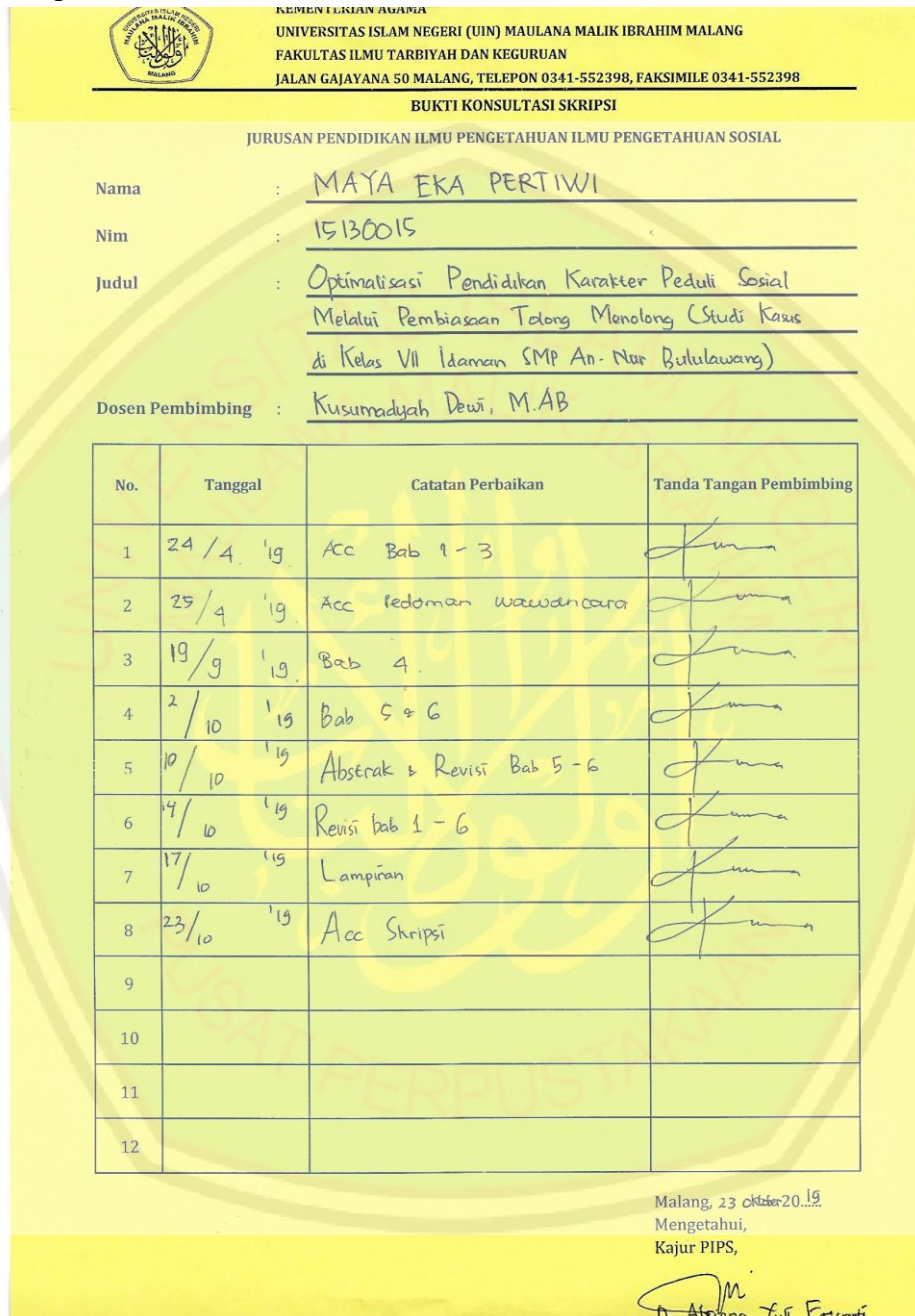 KEMENTERIAN AGAMA
UNIVERSITAS ISLAM NEGERI (UIN) MAULANA MALIK IBRAHIM MALANG
FAKULTAS ILMU TARBIYAH DAN KEGURUAN
JALAN GAJAYANA 50 MALANG, TELEPON 0341-552398, FAKSIMILE 0341-552398
BUKTI KONSULTASI SKRIPSI
JURUSAN PENDIDIKAN ILMU PENGETAHUAN ILMU PENGETAHUAN SOSIAL
Nama : MAYA EKA PERTIWI
Nim : 15130015
Judul : Optimalisasi Pendidikan Karakter Peduli Sosial
Melalui Pembiasaan Tolong Menolong (Studi Kasus
di Kelas VII Idaman SMP An-Nur Bululawang)
Dosen Pembimbing : Kusumadyah Dewi, M.AB
No. Tanggal Catatan Perbaikan Tanda Tangan Pembimbing
1 24/4 '19 Acc Bab 1-3
2 25/4 '19 Acc Pedoman wawancara
3 19/9 '19 Bab 4
4 2/10 '19 Bab 5 & 6
5 10/10 '19 Abstrak & Revisi Bab 5-6
6 14/10 '19 Revisi bab 1-6
7 17/10 '19 Lampiran
8 23/10 '19 Acc Skripsi
9
10
11
12
UNIVERSITAS ISLAM NEGERI
MAULANA MALIK IBRAHIM
PUSAT PERPUSTAKAAN
Malang, 23 Oktober 2019
Mengetahui,
Kajur PIPS,